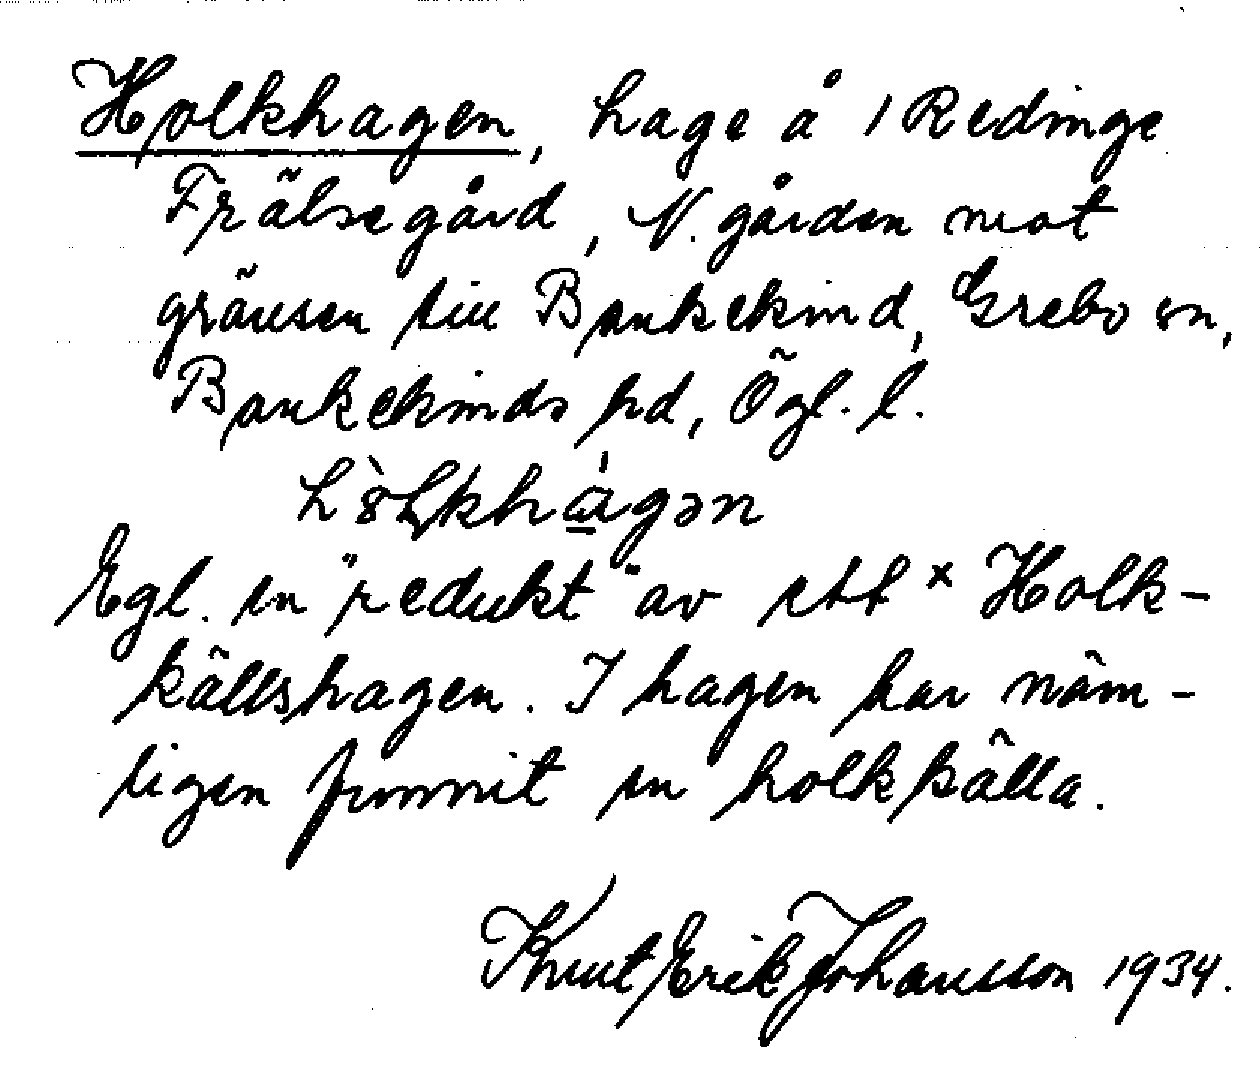 Holkhagen, hage å 1 Redinge
Frälsegård, N. gården mot
gränsen till Bankekind, Grebo sn,
Bankekinds hd, Ögl. l.
Egl. en "redukt" av ett × Holk-
källshagen. I hagen har näm-
ligen funnit en holkkälla.
Knut Erik Johansson 1934.